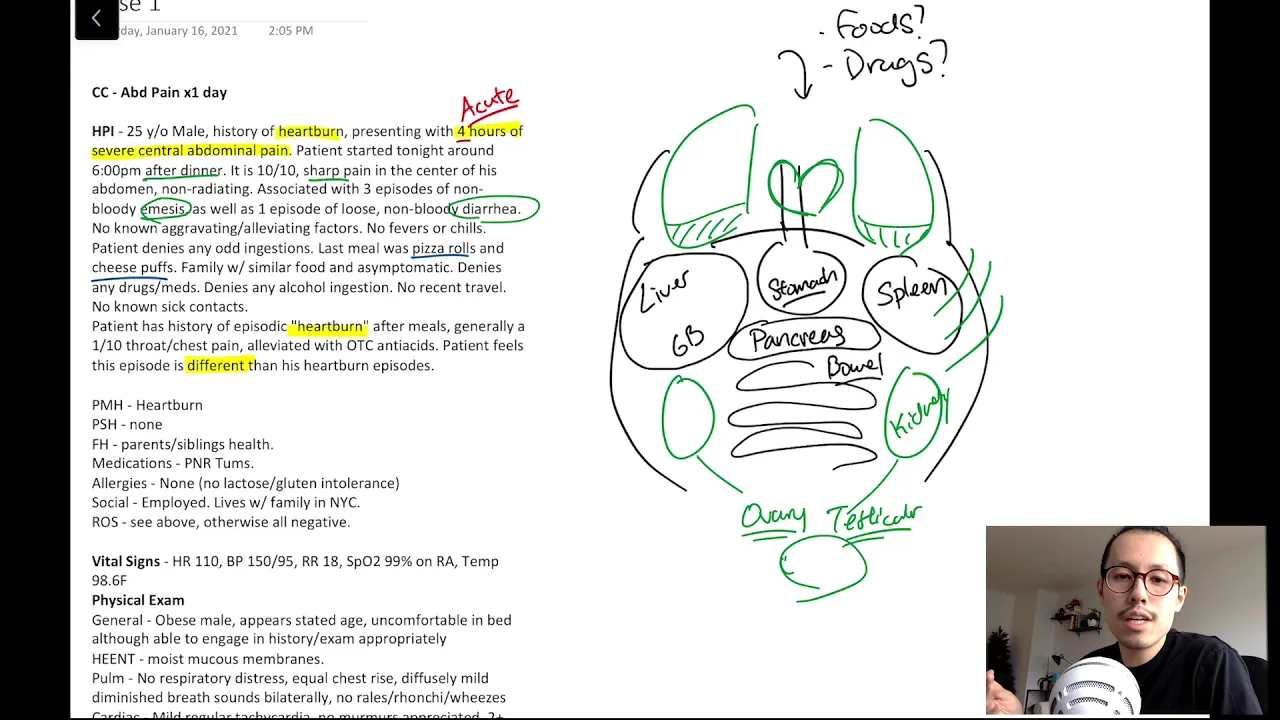 se 1
day, January 16, 2021 2:05 PM
CC - Abd Pain x1 day
Acute
HPI - 25 y/o Male, history of heartburn, presenting with 4 hours of
severe central abdominal pain. Patient started tonight around
6:00pm after dinner. It is 10/10, sharp pain in the center of his
abdomen, non-radiating. Associated with 3 episodes of non-
bloody emesis, as well as 1 episode of loose, non-bloody diarrhea.
No known aggravating/alleviating factors. No fevers or chills.
Patient denies any odd ingestions. Last meal was pizza rolls and
cheese puffs. Family w/ similar food and asymptomatic. Denies
any drugs/meds. Denies any alcohol ingestion. No recent travel.
No known sick contacts.
Patient has history of episodic "heartburn" after meals, generally a
1/10 throat/chest pain, alleviated with OTC antiacids. Patient feels
this episode is different than his heartburn episodes.
PMH - Heartburn
PSH - none
FH - parents/siblings health.
Medications - PNR Tums.
Allergies - None (no lactose/gluten intolerance)
Social - Employed. Lives w/ family in NYC.
ROS - see above, otherwise all negative.
Vital Signs - HR 110, BP 150/95, RR 18, SpO2 99% on RA, Temp
98.6F
Physical Exam
General - Obese male, appears stated age, uncomfortable in bed
although able to engage in history/exam appropriately
HEENT - moist mucous membranes.
Pulm - No respiratory distress, equal chest rise, diffusely mild
diminished breath sounds bilaterally, no rales/rhonchi/wheezes
Cardiac - Mild regular tachycardia, no murmurs appreciated, 2+
. Foods?
- Drugs?
Liver
GB
Stomach
Spleen
Pancreas
Bowel
Kidney
Ovary Testicular